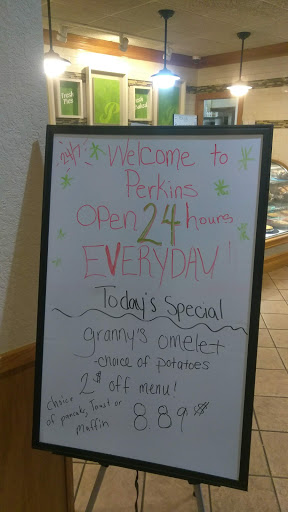 Fresh
Pies
P
Welcome to
Perkins
Open 24 hours
EVERYDAY!
Today's Special
granny's omelet
-choice of potatoes
2$ off menu!
choice
of pancake, Toast or
Muffin
8.89